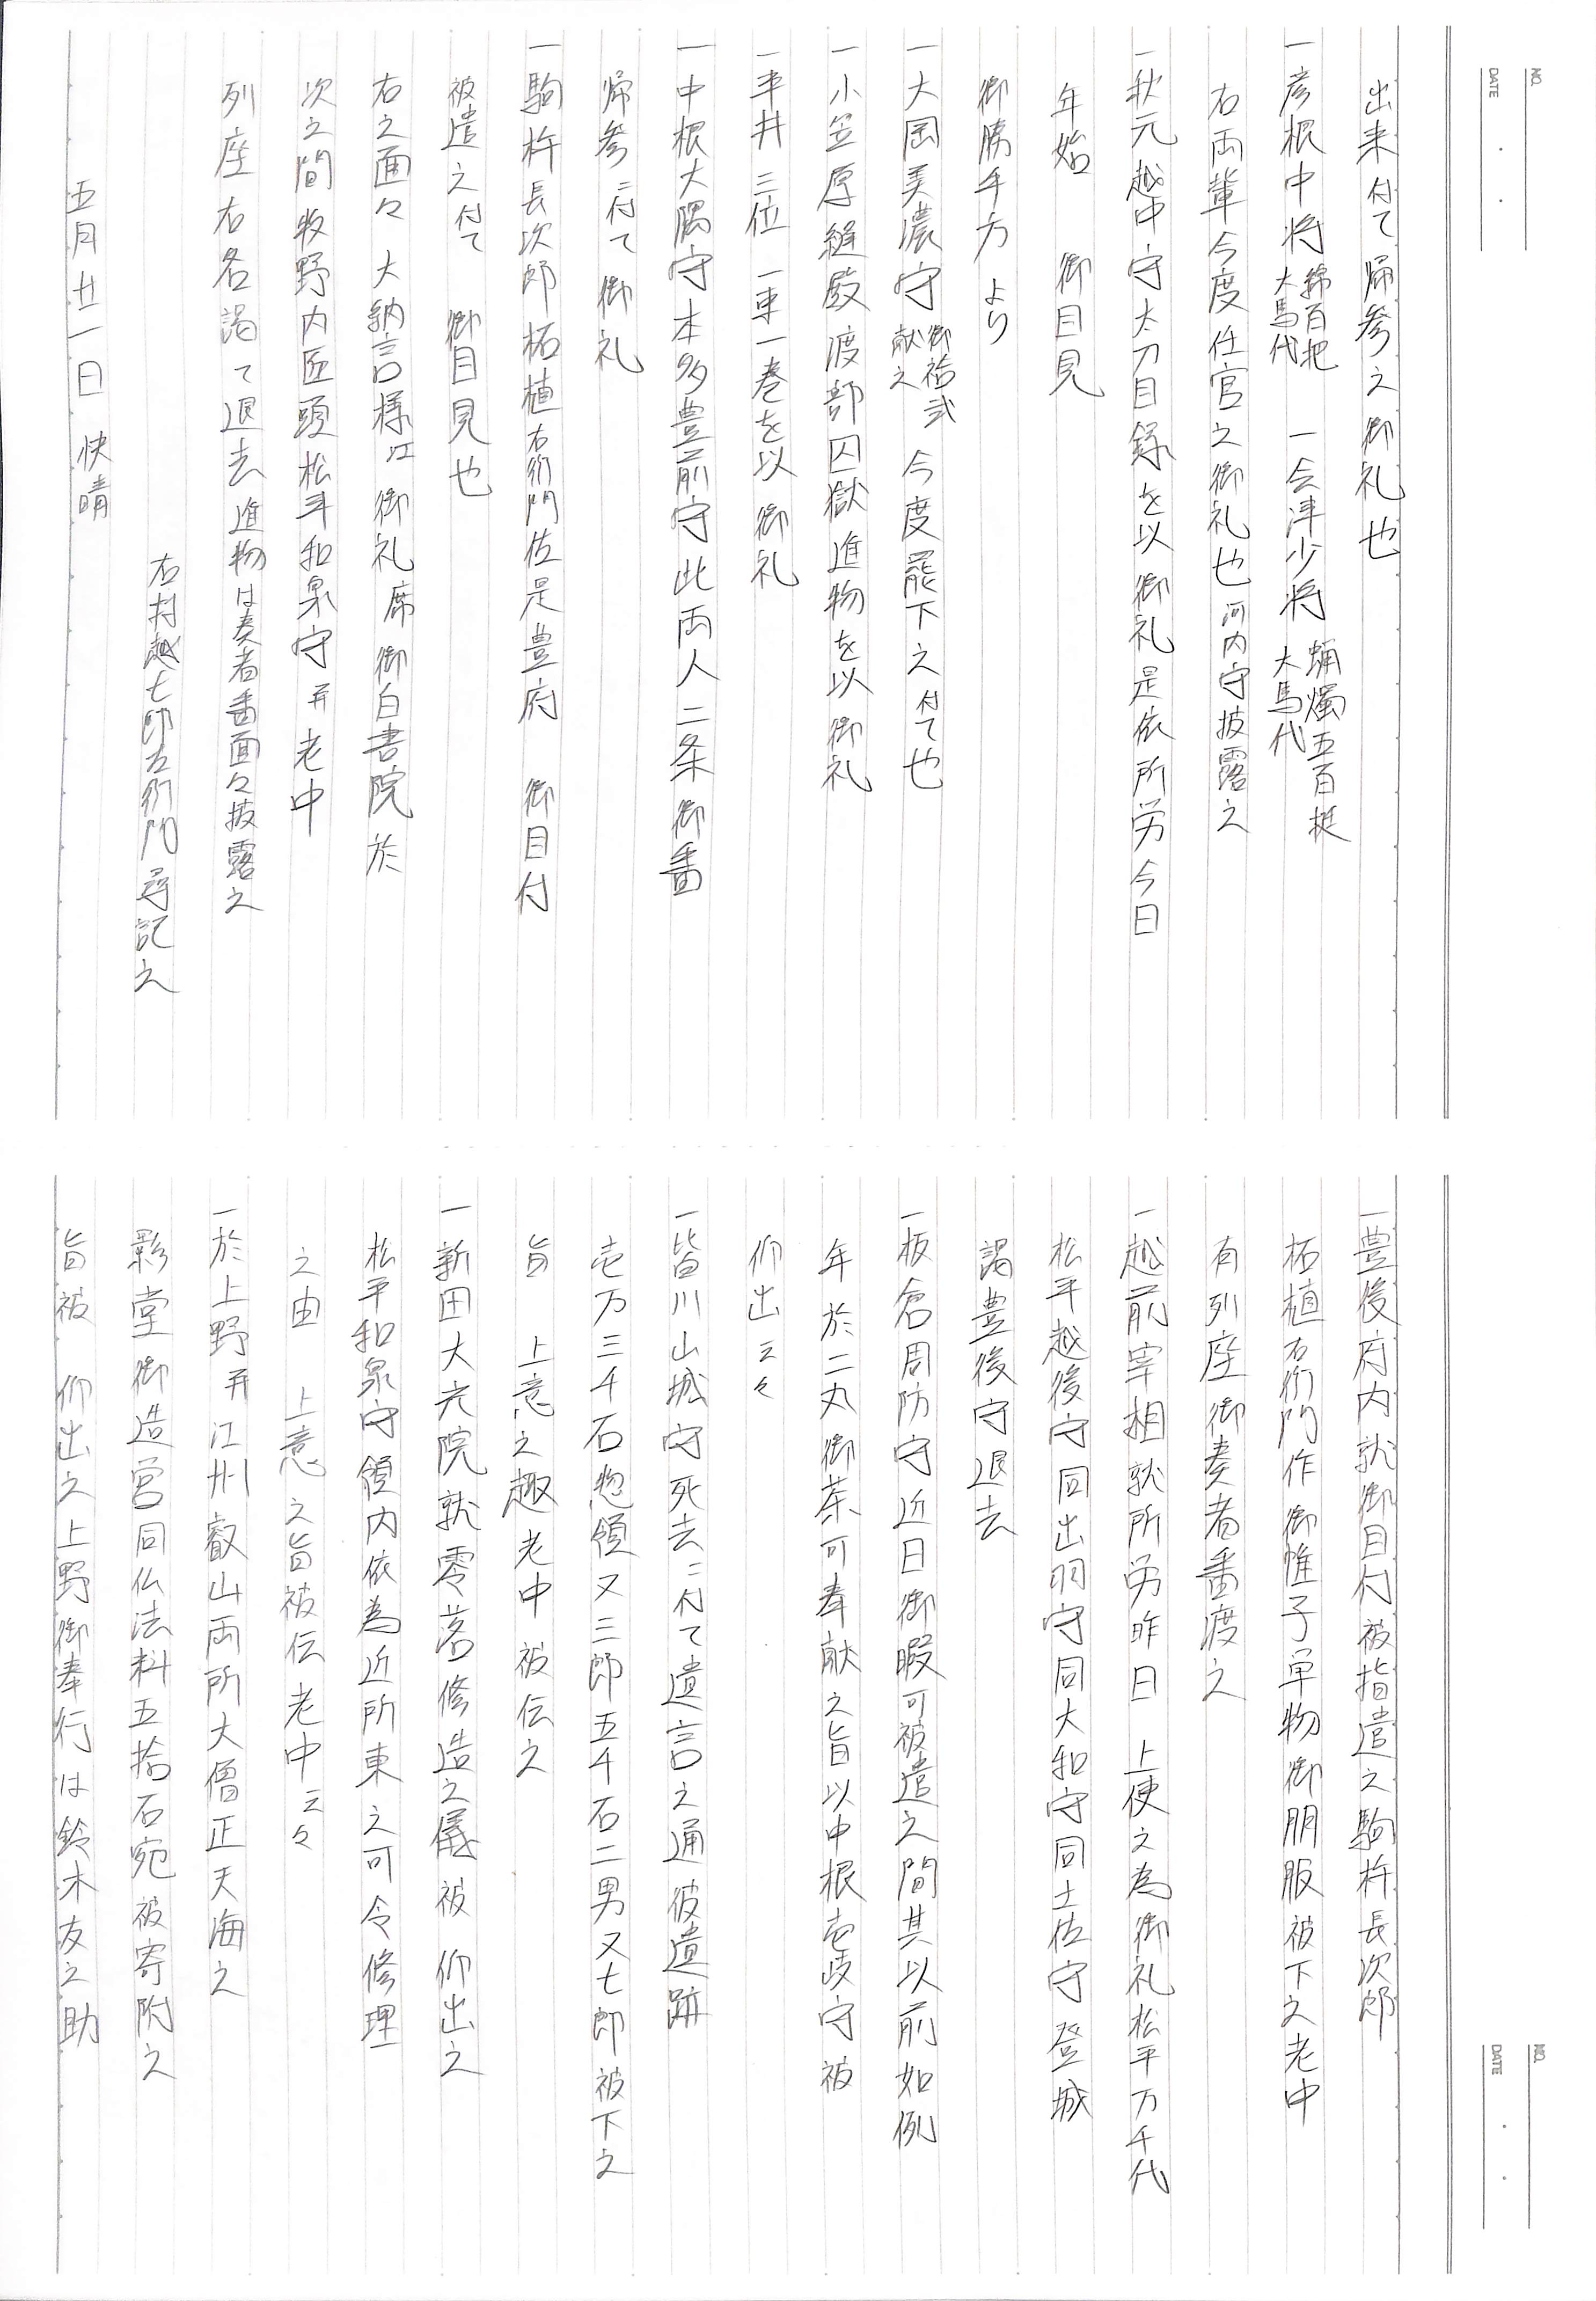 NO.
DATE
出来付て帰参之御礼也
一彦根中将 綿百把 大馬代 一会津少将 蝋燭五百挺 大馬代
右両輩今度任官之御礼也 河内守披露之
一秋元越中守太刀目録を以御礼是依所労今日
年始 御目見
御勝手方より
一大岡美濃守 御袷弐 献之 今度罷下之付て也
一小笠原縫殿渡部囚獄進物を以御礼
一平井三位一束一巻を以御礼
一中根大隅守本多豊前守此両人二条御番
帰参ニ付て御礼
一駒杵長次郎柘植右衛門佐是豊府 御目付
被遣之付て 御目見也
右之面々 大納言様江御礼席御白書院於
次之間牧野内匠頭松平和泉守并老中
列座右各謁て退去進物は奏者番面々披露之
右村越七郎左衛門尋記之
五月廿一日 快晴
NO.
DATE
一豊後府内就御目付被指遣之駒杵長次郎
柘植右衛門作御帷子単物御朋服被下之老中
有列座御奏者番渡之
一越前宰相就所労昨日 上使之為御礼松平万千代
松平越後守同出羽守同大和守同土佐守登城
謁豊後守退去
一板倉周防守近日御暇可被遣之間其以前如例
年於二丸御茶可奉献之旨以中根壱岐守被
仰出云々
一皆川山城守死去ニ付て遺言之通彼遺跡
壱万三千石惣領又三郎五千石二男又七郎被下之
旨 上意之趣老中被伝之
一新田大光院就零落修造之儀被 仰出之
松平和泉守領内依為近所東之可令修理
之由 上意之旨被伝老中云々
一於上野并江州叡山両所大僧正天海之
影堂御造営同仏法料五拾石宛被寄附之
旨被 仰出之上野御奉行は鈴木友之助